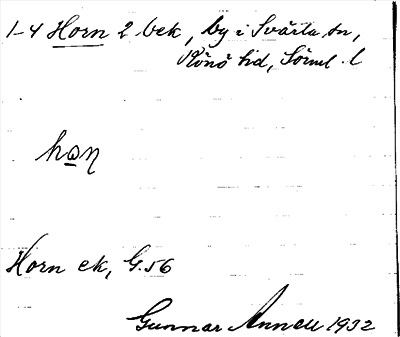 1-4 Horn 2 bek, by i Svärta sn,
Rönö hd, Sörml. l
hɷŋ
Horn ek, G. 56
Gunnar Annell 1932